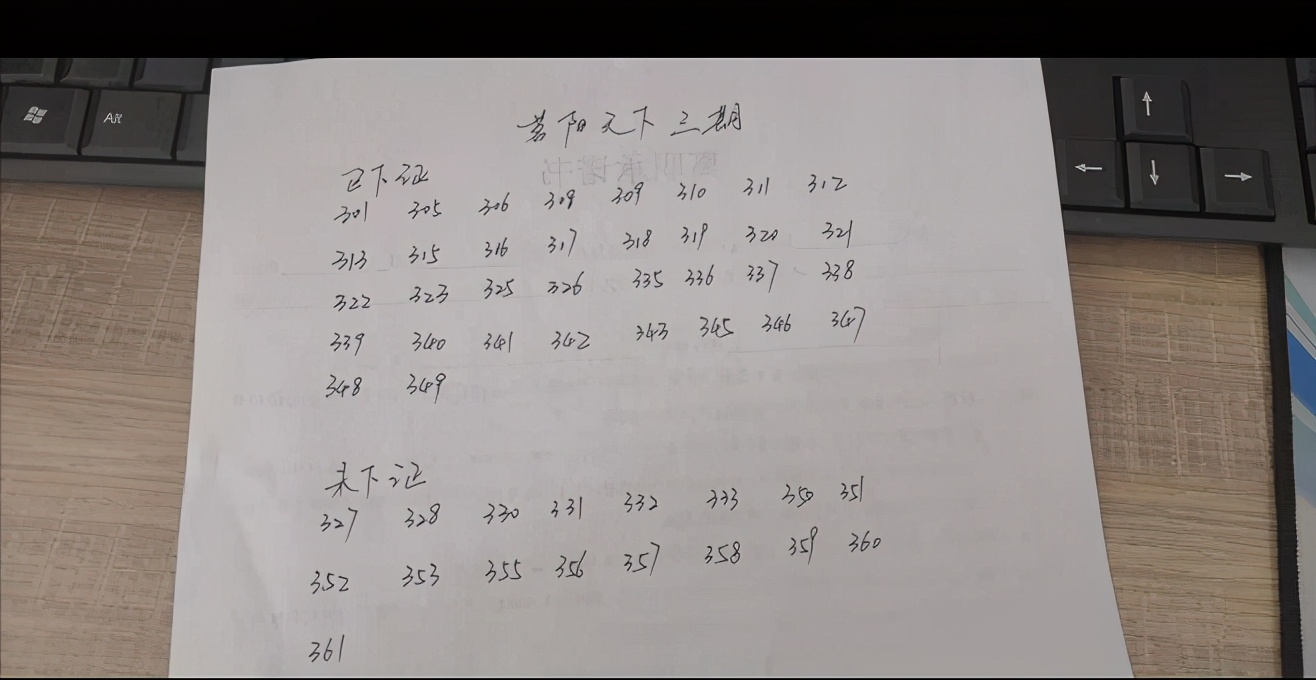 昔阳天下三期
已下证
301 305 306 308 309 310 311 312
313 315 316 317 318 319 320 321
322 323 325 326 335 336 337 338
339 340 341 342 343 345 346 347
348 349
未下证
327 328 330 331 332 333 350 351
352 353 355 356 357 358 359 360
361